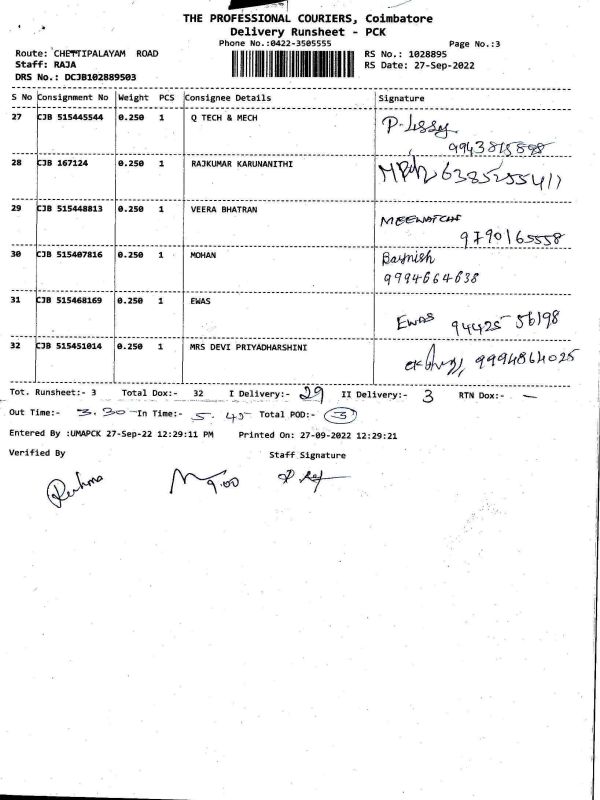 THE PROFESSIONAL COURIERS, Coimbatore
Delivery Runsheet - PCK
Phone No.:0422-3505555 Page No.:3
Route: CHETTIPALAYAM ROAD RS No.: 1028895
Staff: RAJA RS Date: 27-Sep-2022
DRS No.: DCJB102889503
S No Consignment No Weight PCS Consignee Details Signature
27 CJB 515445544 0.250 1 Q TECH & MECH P. Lissy
9943815898
28 CJB 167124 0.250 1 RAJKUMAR KARUNANITHI 6385255411
29 CJB 515448813 0.250 1 VEERA BHATRAN MEENATCHI
9790165558
30 CJB 515407816 0.250 1 MOHAN
9994664638
31 CJB 515468169 0.250 1 EWAS
EWAS 94425 56198
32 CJB 515451014 0.250 1 MRS DEVI PRIYADHARSHINI
9994864025
Tot. Runsheet:- 3 Total Dox:- 32 I Delivery:- 29 II Delivery:- 3 RTN Dox:- -
Out Time:- 3.30 In Time:- 5.45 Total POD:- 3
Entered By :UMAPCK 27-Sep-22 12:29:11 PM Printed On: 27-09-2022 12:29:21
Verified By Staff Signature
9.00